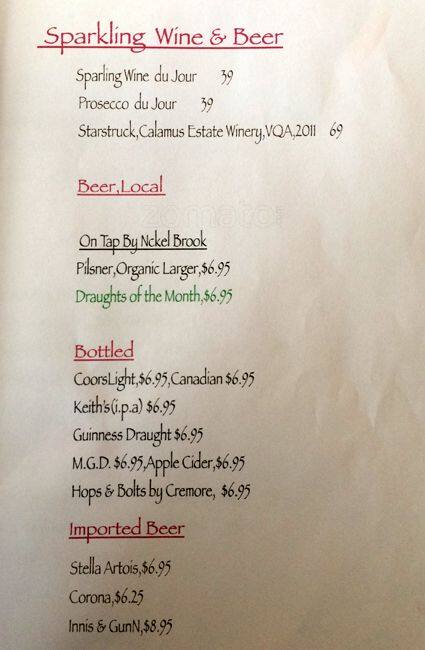 Sparkling Wine & Beer
Sparling Wine du Jour 39
Prosecco du Jour 39
Starstruck,Calamus Estate Winery,VQA,2011 69
Beer,Local
zomato
On Tap By Nckel Brook
Pilsner,Organic Larger,$6.95
Draughts of the Month,$6.95
Bottled
CoorsLight,$6.95,Canadian $6.95
Keith's(i.p.a) $6.95
Guinness Draught $6.95
M.G.D. $6.95,Apple Cider,$6.95
Hops & Bolts by Cremore, $6.95
Imported Beer
Stella Artois,$6.95
Corona,$6.25
Innis & GunN,$8.95